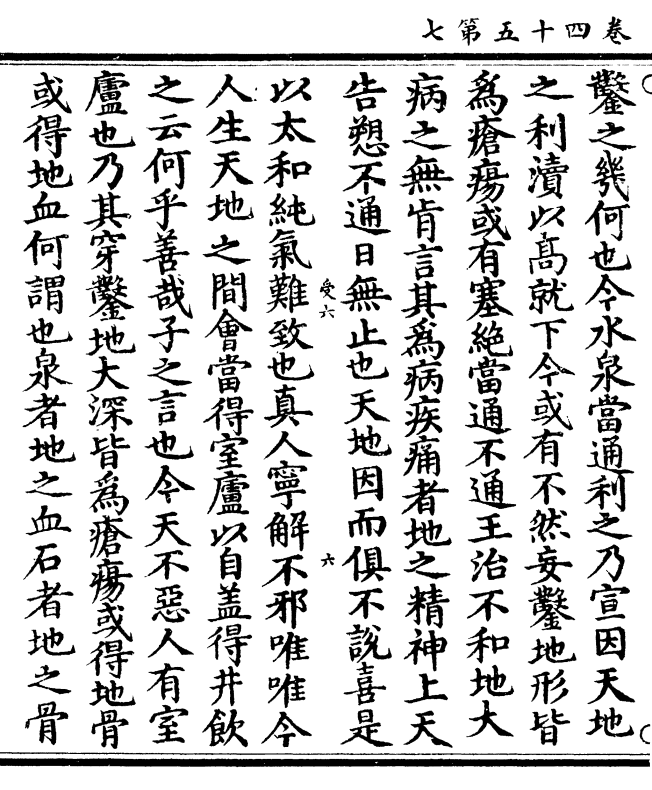 卷四十五第七
鑿之幾何也今水泉當通利之乃宣因天地
之利瀆以髙就下今或有不然妄鑿地形皆
爲瘡瘍或有塞絶當通不通王治不和地大
病之無肯言其爲病疾痛者地之精神上天
告愬不通日無止也天地因而俱不說喜是
受六 六
以太和純氣難致也真人寧解不邪唯唯今
人生天地之間會當得室廬以自盖得井飲
之云何乎善哉子之言也今天不惡人有室
廬也乃其穿鑿地大深皆爲瘡瘍或得地骨
或得地血何謂也泉者地之血石者地之骨